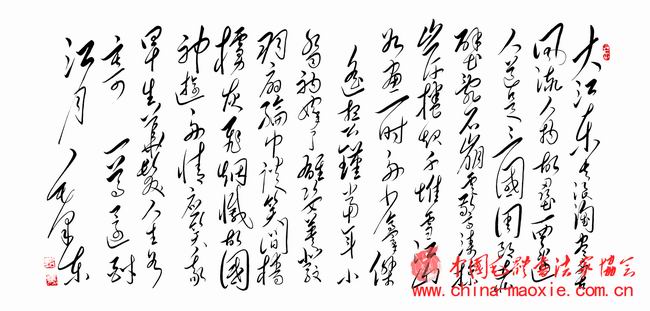 大江东去浪淘尽千古
风流人物故垒西边
人道是三國周郎赤
壁乱石崩雲惊涛掠
岸捲起千堆雪江山
如画一时多少豪傑
遥想公瑾當年小
喬初嫁了雄姿英發
羽扇綸巾談笑间樯
櫓灰飞烟滅故國
神遊多情應笑我
早生華髮人生如
一尊還酹
江月 毛泽东
中国毛体书法家协会
www.china-maoxie.com.cn